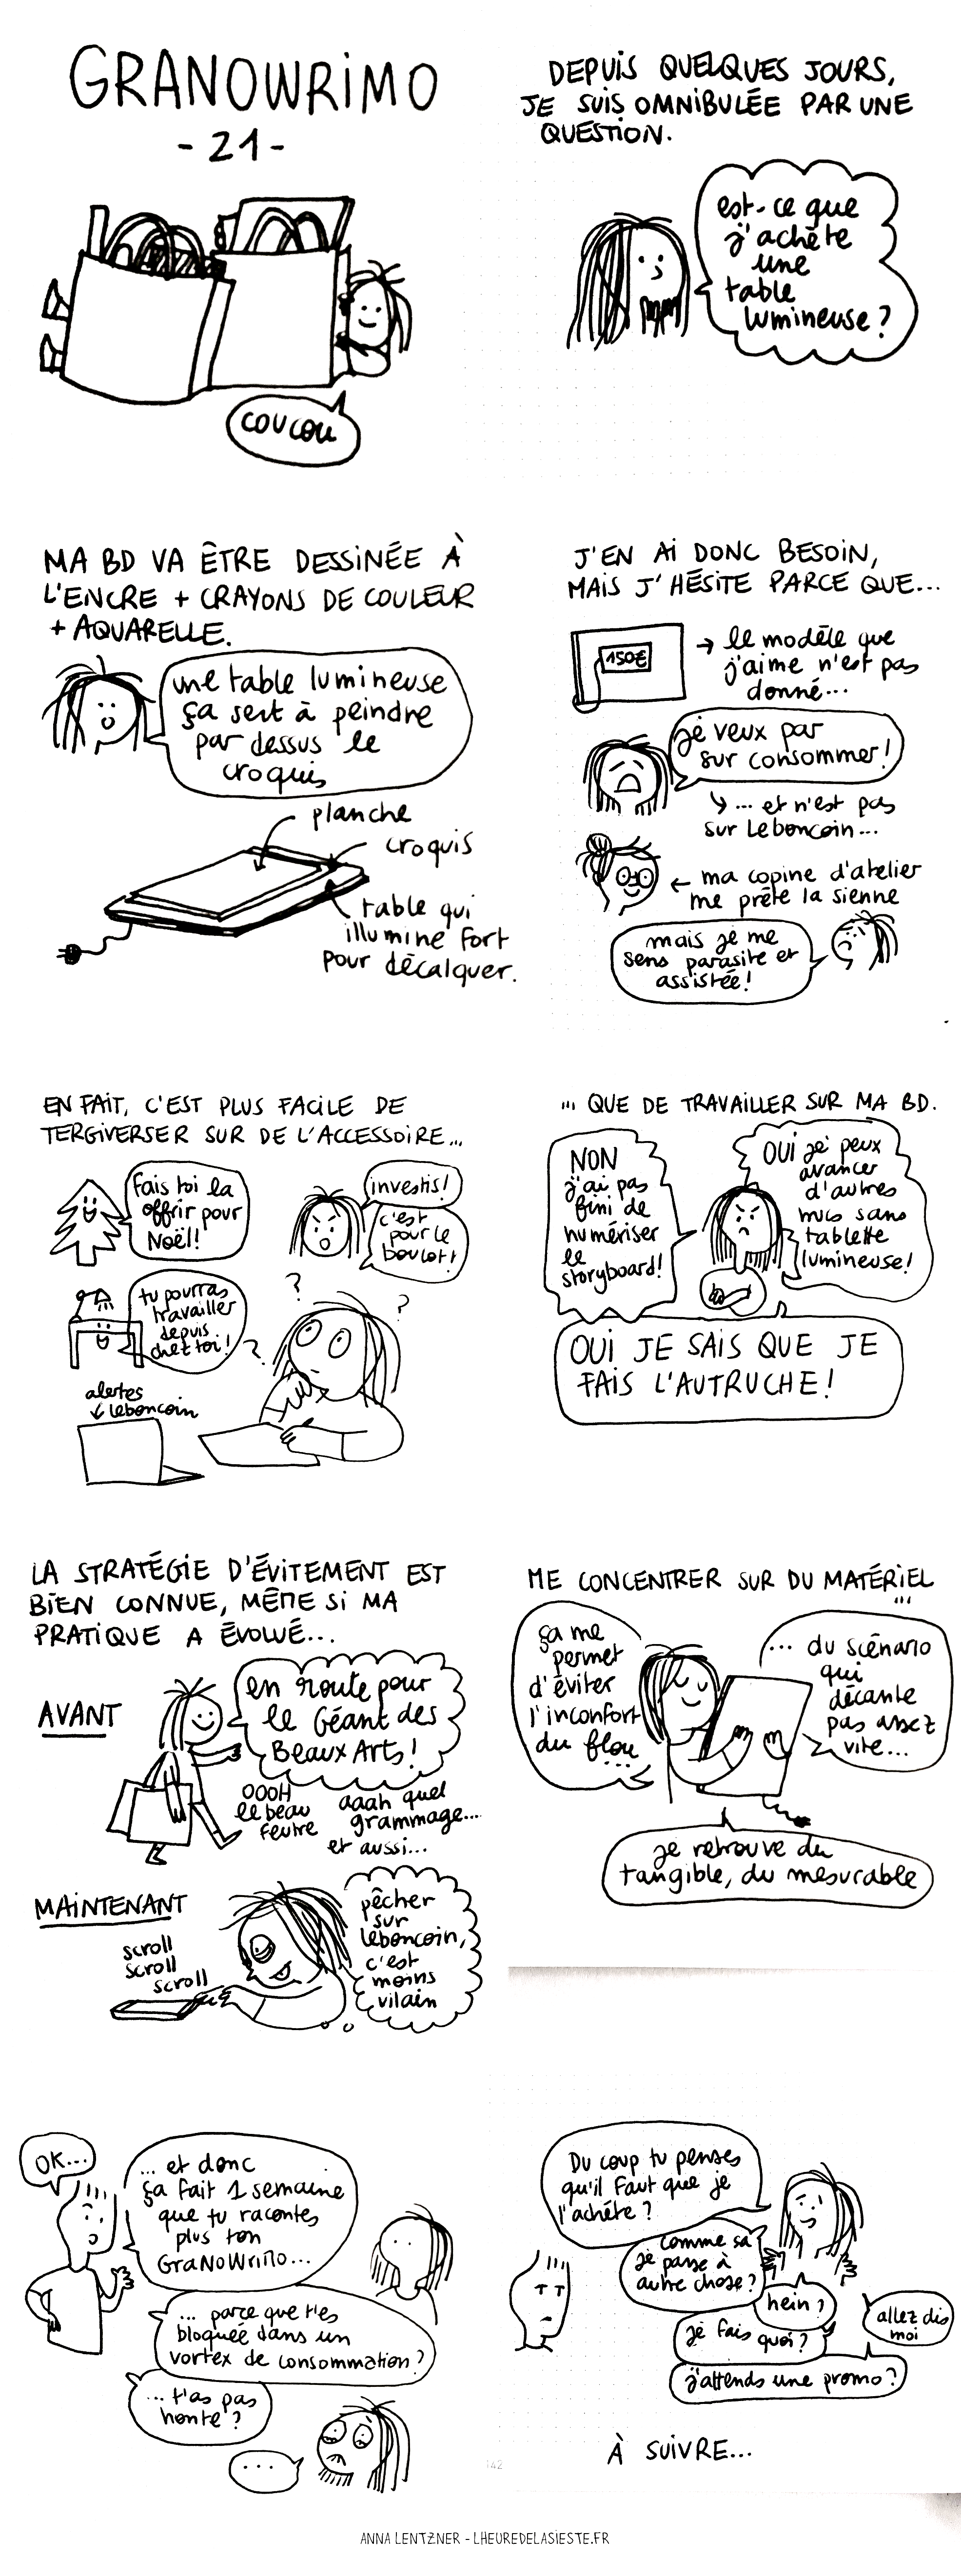 GRANOWRIMO
- 21 -
COUCOU
DEPUIS QUELQUES JOURS,
JE SUIS OMNIBULÉE PAR UNE
QUESTION.
est-ce que
j'achète
une
table
lumineuse ?
MA BD VA ÊTRE DESSINÉE À
L'ENCRE + CRAYONS DE COULEUR
+ AQUARELLE.
une table lumineuse
ça sert à peindre
par dessus le
croquis
planche
croquis
table qui
illumine fort
pour décalquer.
J'EN AI DONC BESOIN,
MAIS J'HÉSITE PARCE QUE...
150€
→ le modèle que
j'aime n'est pas
donné...
je veux pas
sur consommer !
↳ ... et n'est pas
sur Leboncoin...
← ma copine d'atelier
me prête la sienne
mais je me
sens parasite et
assistée !
EN FAIT, C'EST PLUS FACILE DE
TERGIVERSER SUR DE L'ACCESSOIRE...
fais toi la
offrir pour
Noël !
investis !
c'est
pour le
boulot !
tu pourras
travailler
depuis
chez toi !
?
?
?
alertes
↓ leboncoin
... QUE DE TRAVAILLER SUR MA BD.
NON
j'ai pas
fini de
numériser
le
storyboard !
OUI je peux
avancer
d'autres
trucs sans
tablette
lumineuse !
OUI JE SAIS QUE JE
FAIS L'AUTRUCHE !
LA STRATÉGIE D'ÉVITEMENT EST
BIEN CONNUE, MÊME SI MA
PRATIQUE A ÉVOLUÉ...
AVANT
en route pour
le Géant des
Beaux Arts !
OOOH
le beau
feutre
aaah quel
grammage...
et aussi...
MAINTENANT
scroll
scroll
scroll
pêcher
sur
leboncoin,
c'est
moins
vilain
ME CONCENTRER SUR DU MATÉRIEL
...
ça me
permet
d'éviter
l'inconfort
du flou
...
... du scénario
qui
décante
pas assez
vite...
je retrouve du
tangible, du mesurable
OK...
... et donc
ça fait 1 semaine
que tu racontes
plus ton
GraNoWriMo...
... parce que t'es
bloquée dans un
vortex de consommation ?
... t'as pas
honte ?
...
Du coup tu penses
qu'il faut que je
l'achète ?
comme ça
je passe à
autre chose ?
hein ?
je fais
quoi ?
allez dis
moi
j'attends une promo ?
À SUIVRE...
142
ANNA LENTZNER - LHEUREDELASIESTE.FR